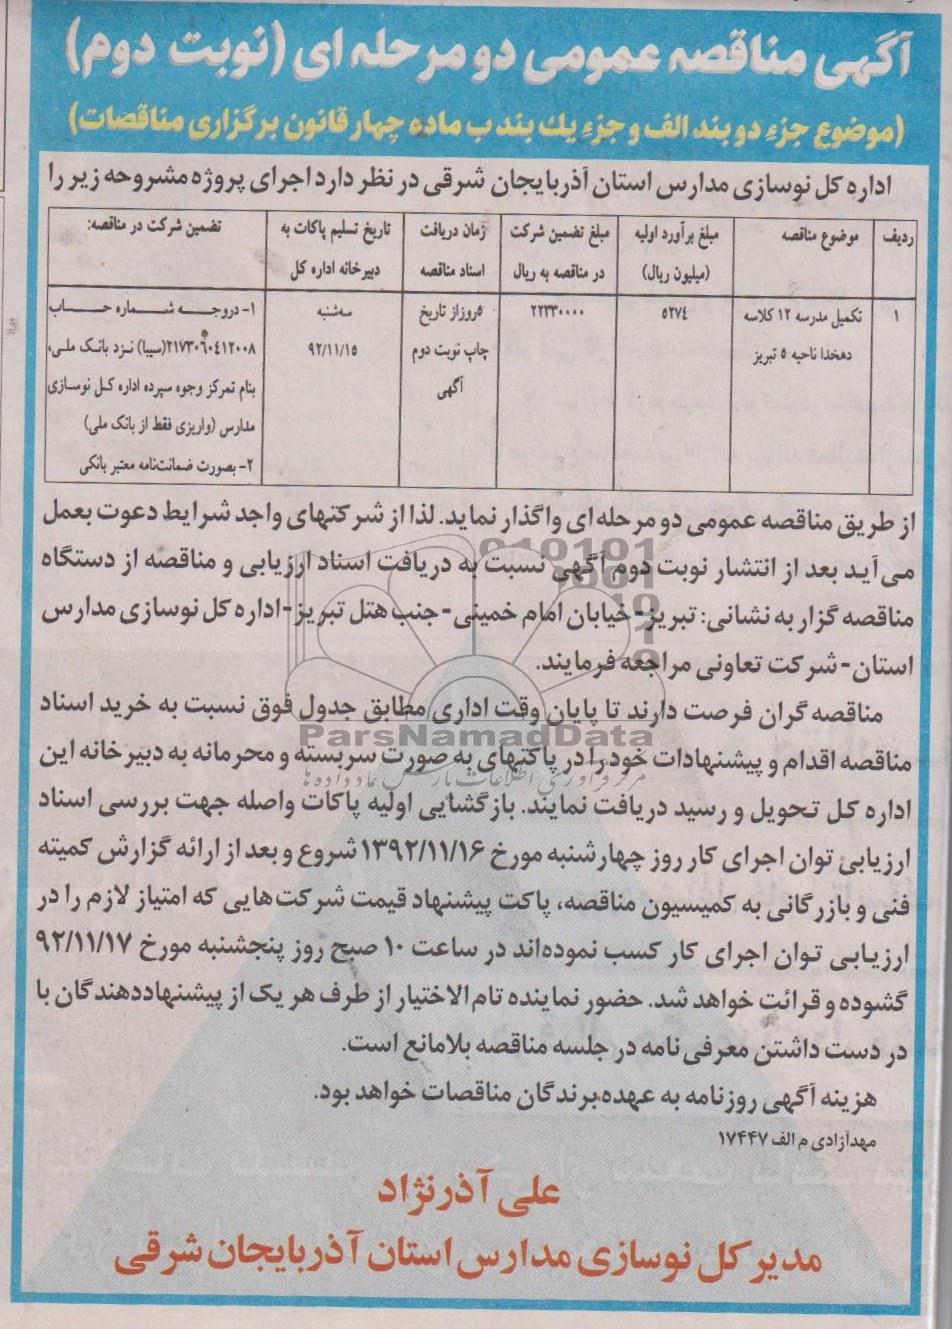 آگهی مناقصه عمومی دو مرحله ای (نوبت دوم)
(موضوع جزء دو بند الف و جزء یك بند ب ماده چهار قانون برگزاری مناقصات)
اداره کل نوسازی مدارس استان آذربایجان شرقی در نظر دارد اجرای پروژه مشروحه زیر را
ردیف
موضوع مناقصه
مبلغ برآورد اولیه
(میلیون ریال)
مبلغ تضمین شرکت
در مناقصه به ریال
زمان دریافت
اسناد مناقصه
تاریخ تسلیم پاکات به
دبیرخانه اداره کل
تضمین شرکت در مناقصه:
۱
تکمیل مدرسه ۱۲ کلاسه
دهخدا ناحیه ۵ تبریز
۵۲۷۴
۲۲۳۳۰۰۰۰
۵روزاز تاریخ
چاپ نوبت دوم
آگهی
سه‌شنبه
۹۲/۱۱/۱۵
۱- دروجـه شـماره حسـاب
۲۱۷۳۰۶۰۴۱۲۰۰۸(سیبا) نـزد بانـک ملـی،
بنام تمرکز وجوه سپرده اداره کـل نوسازی
مدارس (واریزی فقط از بانک ملی)
۲- بصورت ضمانت‌نامه معتبر بانکی
از طریق مناقصه عمومی دو مرحله‌ای واگذار نماید. لذا از شرکتهای واجد شرایط دعوت بعمل
می‌آیـد بعد از انتشار نوبت دوم آگهی نسبت به دریافت اسناد ارزیابی و مناقصه از دستگاه
مناقصه گزار به نشانی: تبریز- خیابان امام خمینی- جنب هتل تبریز- اداره کل نوسازی مدارس
استان- شرکت تعاونی مراجعه فرمایند.
مناقصه گران فرصت دارند تا پایان وقت اداری مطابق جدول فوق نسبت به خرید اسناد
مناقصه اقدام و پیشنهادات خود را در پاکتهای به صورت سربسته و محرمانه به دبیرخانه این
اداره کل تحویل و رسید دریافت نمایند. بازگشایی اولیه پاکات واصله جهت بررسی اسناد
ارزیابی توان اجرای کار روز چهارشنبه مورخ ۱۳۹۲/۱۱/۱۶ شروع و بعد از ارائه گزارش کمیته
فنی و بازرگانی به کمیسیون مناقصه، پاکت پیشنهاد قیمت شرکت‌هایی که امتیاز لازم را در
ارزیـابی توان اجرای کار کسب نموده‌اند در ساعت ۱۰ صبح روز پنجشنبه مورخ ۹۲/۱۱/۱۷
گشوده و قرائت خواهد شد. حضور نماینده تام‌الاختیار از طرف هر یک از پیشنهاددهندگان با
در دست داشتن معرفی‌نامه در جلسه مناقصه بلامانع است.
هزینه آگهی روزنامه به عهده برندگان مناقصات خواهد بود.
مهدآزادی م الف ۱۷۴۴۷
علی آذرنژاد
مدیر کل نوسازی مدارس استان آذربایجان شرقی
ParsNamadData
مرکز فرآوری اطلاعات پارس نماد داده‌ها